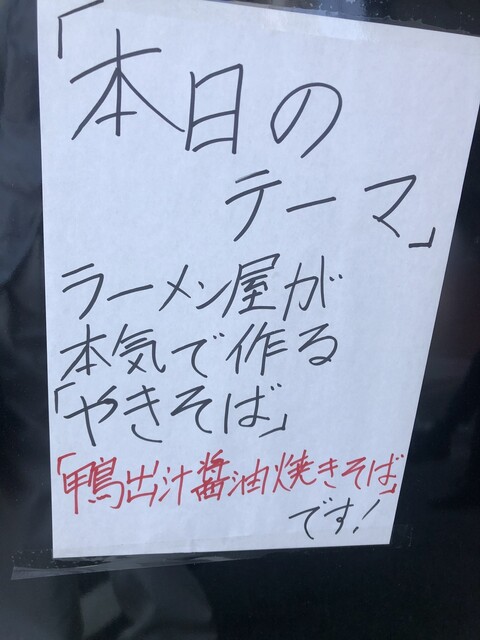 「本日の
テーマ」
ラーメン屋が
本気で作る
「やきそば」
「鴨出汁醤油焼きそば」
です!